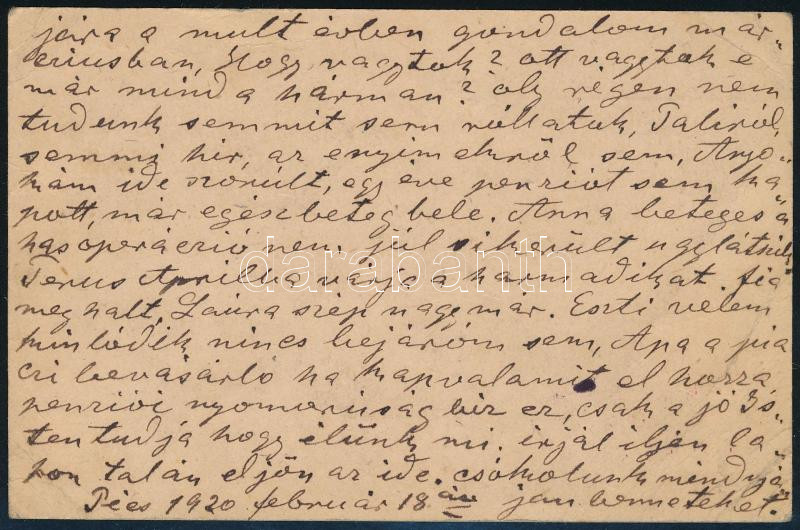 jára a mult évben gondolom már-
ciusban, Hogy vagytok? ott vagytok e
már mind a hárman? oly régen nem
tudunk semmit sem róllatok, Taliról,
semmi hir, az enyimekről sem, Anyó-
kám ide szorúlt, egy éve penziót sem ka-
pott, már egész beteg bele. Anna beteges a
has operáczió nem jól sikerült ugylátszik
Terus Aprilba várja a harmadikat. fia
meghalt, Laura szép nagy már. Eszti velem
kinlódik nincs bejáróm sem, Apa a pia
czi bevásárló ha kap valamit el hozza
penziói nyomorúság biz ez, csak a jó Is-
ten tudja hogy élünk mi. irjál iljen la-
pon talán eljön az ide. csókolunk mindnyá-
Pécs 1920 február 18 án jan benneteket.
darabanth